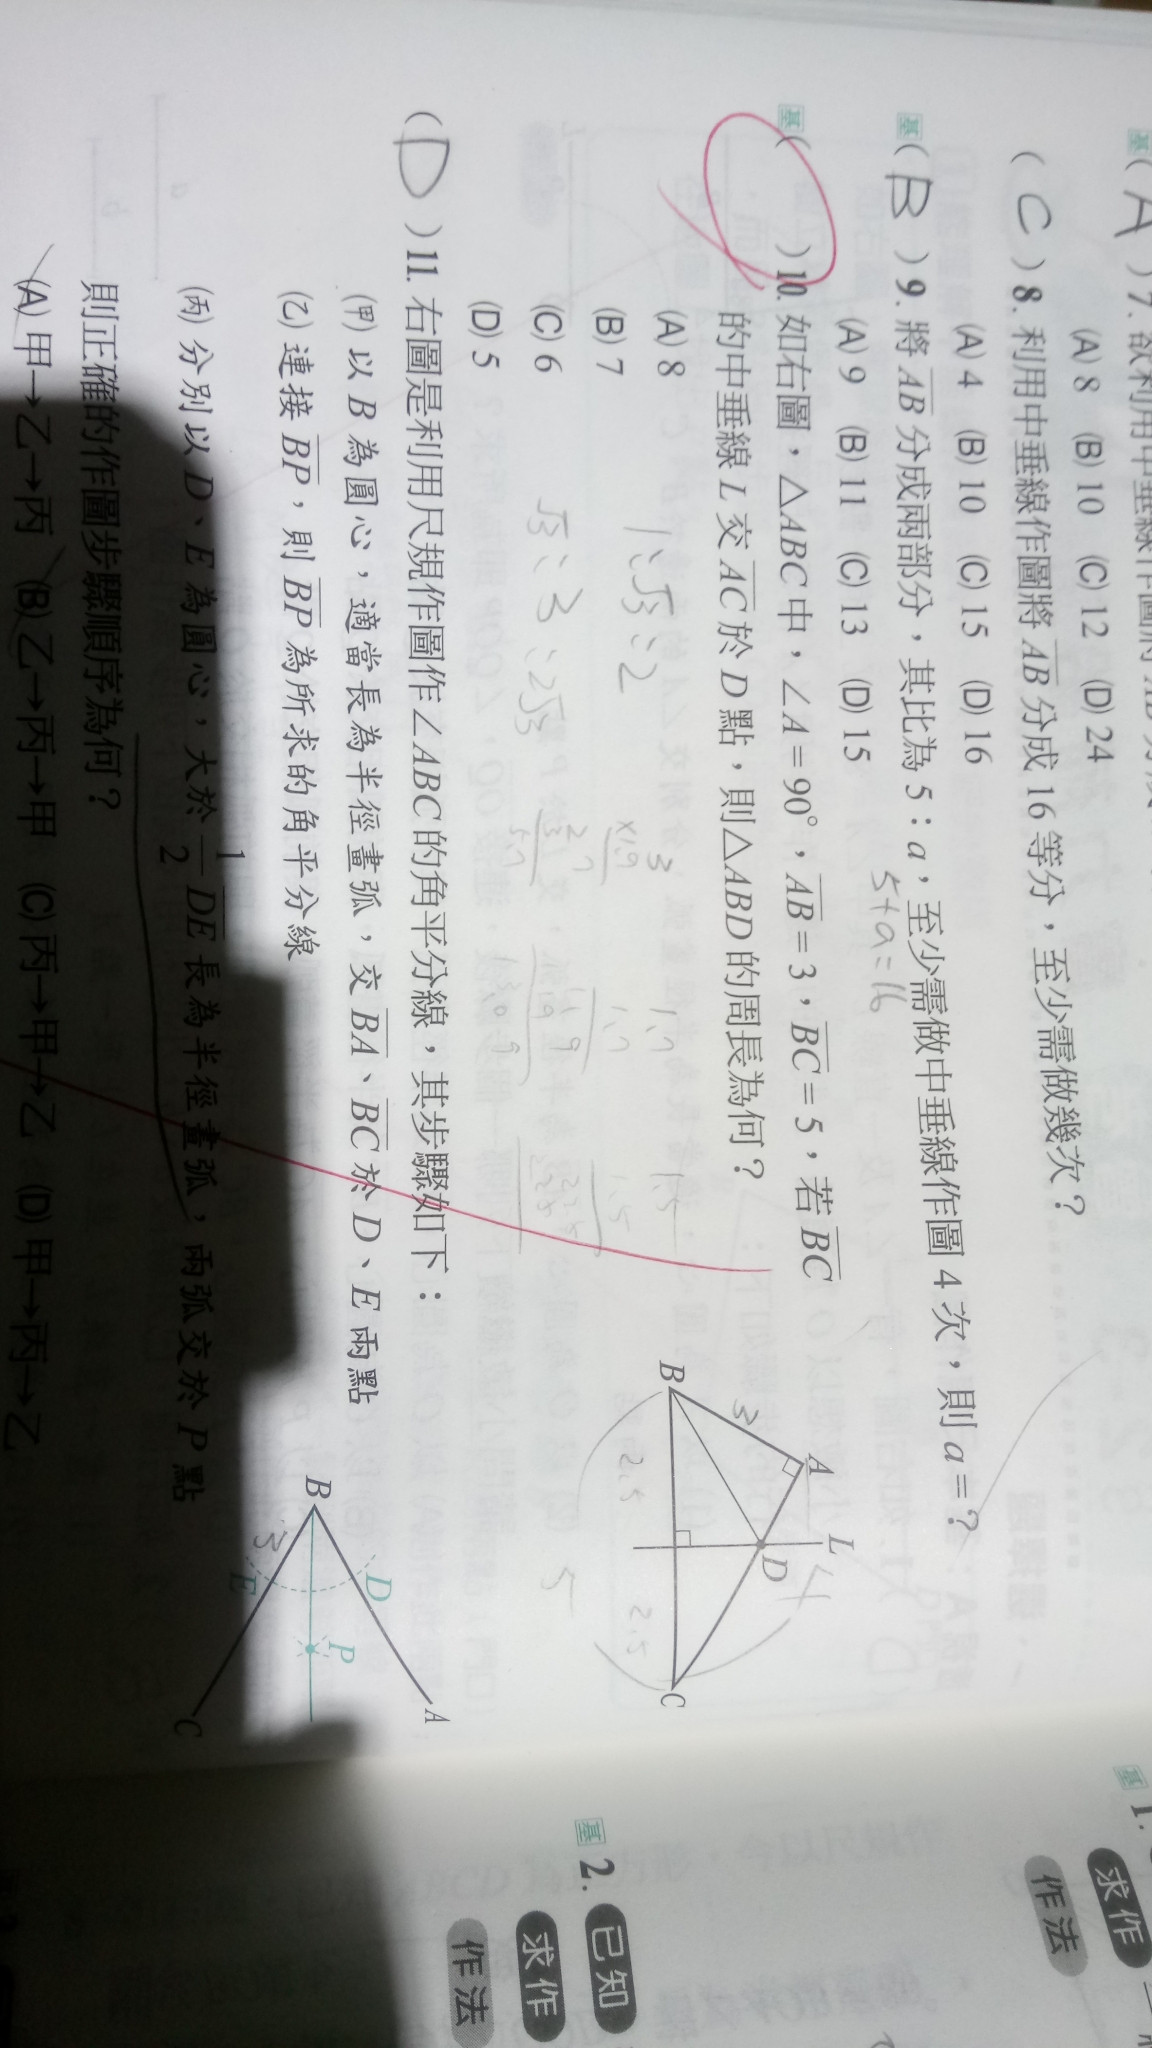 基( A )7. 欲利用中垂線作圖將
(A) 8 (B) 10 (C) 12 (D) 24
( C )8. 利用中垂線作圖將 AB 分成 16 等分，至少需做幾次？
(A) 4 (B) 10 (C) 15 (D) 16
基( B )9. 將 AB 分成兩部分，其比為 5：a，至少需做中垂線作圖 4 次，則 a=？
5+a=16
(A) 9 (B) 11 (C) 13 (D) 15
基( )10. 如右圖，△ABC 中，∠A=90°，AB=3，BC=5，若 BC
的中垂線 L 交 AC 於 D 點，則△ABD 的周長為何？
(A) 8
(B) 7
(C) 6
(D) 5
1:√3:2
√3:3:2√3
A
L
D
B
C
3
4
2.5
2.5
5
( D )11. 右圖是利用尺規作圖作∠ABC 的角平分線，其步驟如下：
(甲) 以 B 為圓心，適當長為半徑畫弧，交 BA、BC 於 D、E 兩點
(乙) 連接 BP，則 BP 為所求的角平分線
(丙) 分別以 D、E 為圓心，大於 1/2 DE 長為半徑畫弧，兩弧交於 P 點
則正確的作圖步驟順序為何？
(A) 甲→乙→丙 (B) 乙→丙→甲 (C) 丙→甲→乙 (D) 甲→丙→乙
A
D
P
B
E
C
3
基 1.
求作
作法
基 2. 已知
求作
作法